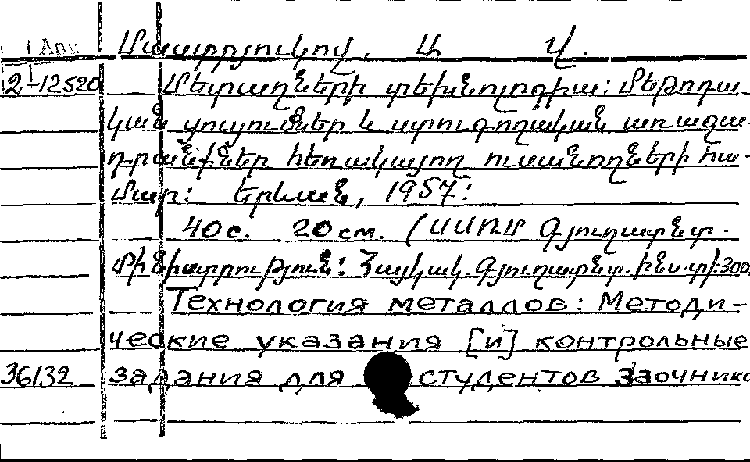 1 Арм
Մատրյուկով, Ա. Վ.
2-12520 Մետաղների տեխնոլոգիա: Մեթոդա-
կան ցուցումներ և ստուգողական առաջա-
դրանքներ հեռակայող ուսանողների հա-
մար: Երևան, 1957:
40с. 20см. (ՍՍՌՄ Գյուղատնտ.
Մինիստրություն: Հայկակ. Գյուղատնտ. ինստ.) 300
Технология металлов: Методи-
ческие указания [и] контрольные
36132 задания для студентов заочнико